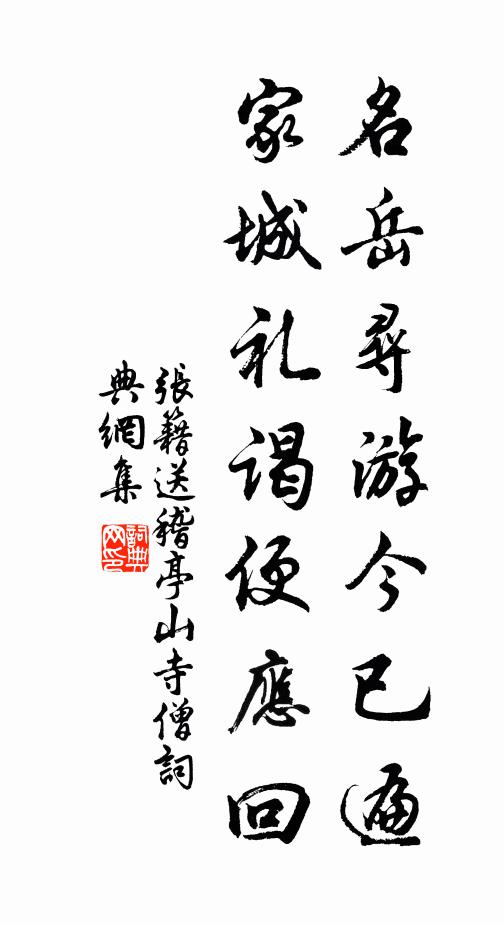 名岳尋游今已遍
家城礼谒便應回
張籍送稽亭山寺僧詞
典網集
詞典网印